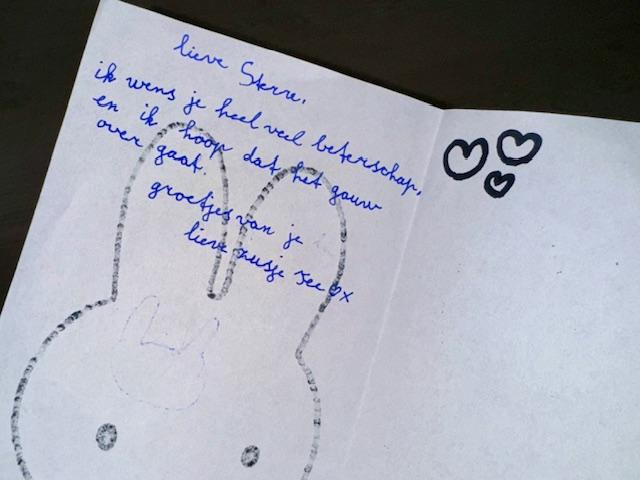 lieve Sterre,
ik wens je heel veel beterschap,
en ik hoop dat het gauw
over gaat.
groetjes van je
lieve zusje